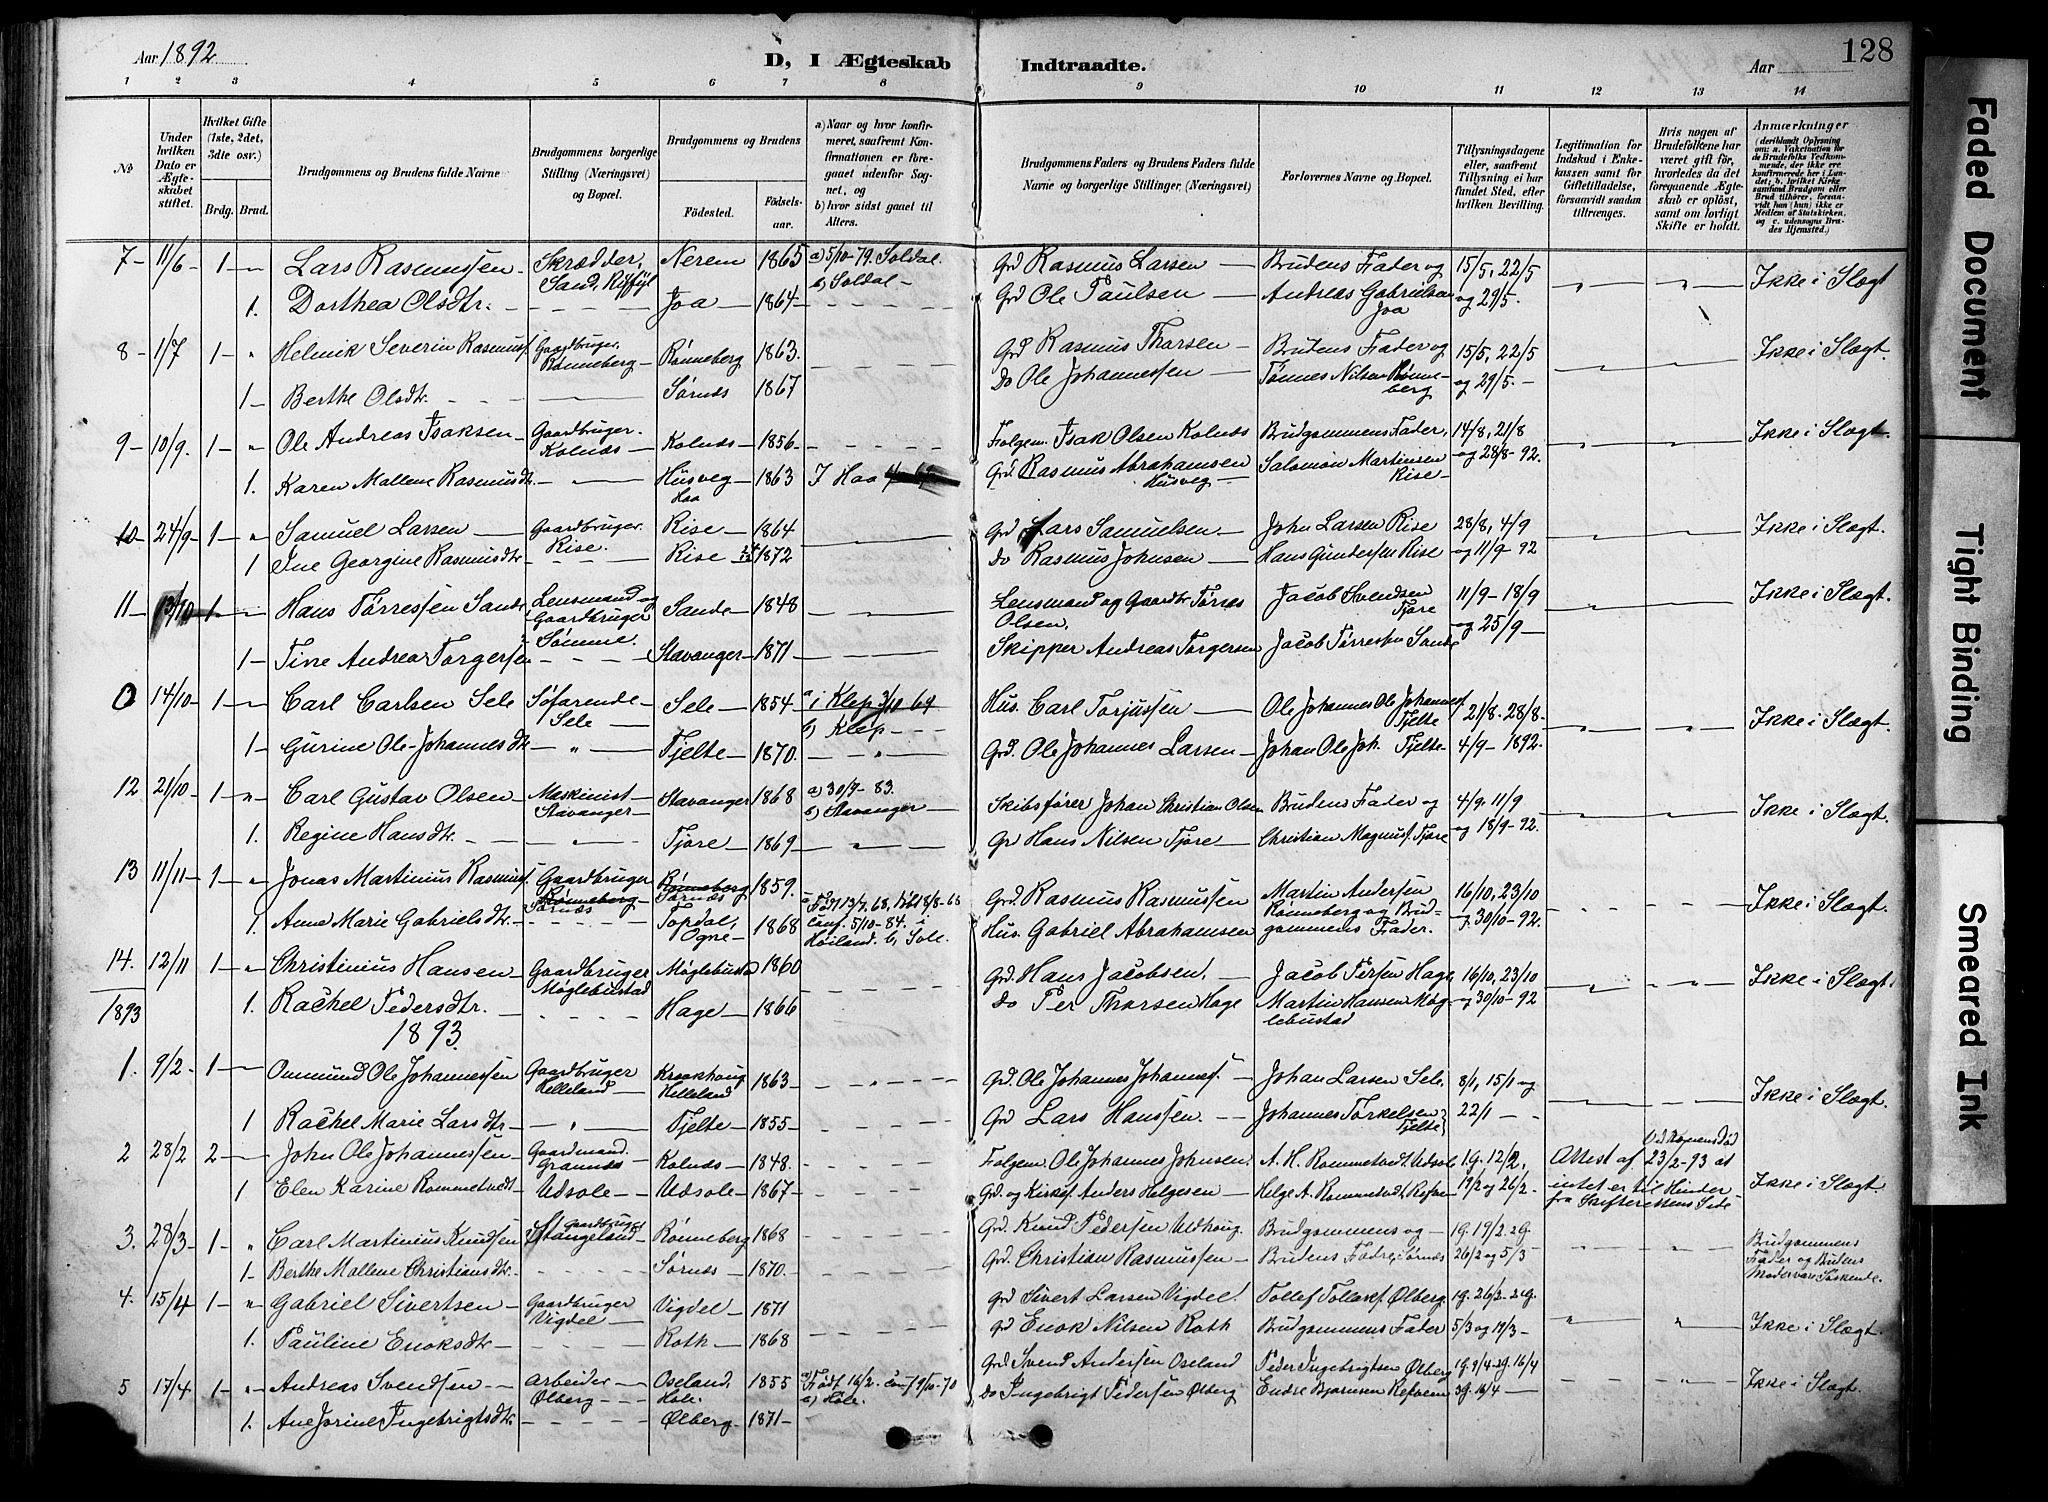 Aar 1892
D, I Ægteskab
Indtraadte.
Aar
128
1 2 3 4 5 6 7 8 9 10 11 12 13 14
No
Under hvilken Dato er Ægteskabet stiftet.
Hvilket Gifte (1ste, 2det, 3die osv.)
Brdg. Brud.
Brudgommens og Brudens fulde Navne
Brudgommens borgerlige Stilling (Næringsvei) og Bopæl.
Brudgommens og Brudens
Födested.
Födselsaar.
a) Naar og hvor konfirmeret, saafremt Konfirmationen er foregaaet udenfor Sognet, og
b) hvor sidst gaaet til Alters.
Brudgommens Faders og Brudens Faders fulde Navne og borgerlige Stillinger (Næringsvei)
Forlovernes Navne og Bopæl.
Tillysningsdagene eller, saafremt Tillysning ei har fundet Sted, efter hvilken Bevilling.
Legitimation for Indskud i Enkekassen samt for Giftetilladelse, forsaavidt saadan tiltrænges.
Hvis nogen af Brudefolkene har været gift för, hvorledes da det foregaaende Ægteskab er oplöst, samt om lovligt Skifte er holdt.
Anmærkninger
(deriblandt Oplysning om: a. Vakcination for de Brudefolks Vedkommende, der ikke ere konfirmerede her i Landet; b. hvilket Kirkesamfund Brudgom eller Brud tilhörer, forsaavidt han (hun) ikke er Medlem af Statskirken, og c. udensogns Brudes Hjemsted.)
7 - 11/6 - 1 - Lars Rasmussen - Skrædder, Sand, Ryfylk. Nerem 1865 a) 5/10-79. Soldal. b) Soldal - Grd Rasmus Larsen - Brudens Fader og 15/5, 22/5 Ikke i Slægt
1. Dorthea Olsdtr. Joa - 1864 - Grd Ole Paulsen - Andreas Gabrielsen Joa og 29/5.
8 - 1/7 1 - Helmik Severin Rasmuss. Gaardbruger, Rønneberg - Rønneberg 1863. Grd Rasmus Thorsen - Brudens Fader og 15/5, 22/5 Ikke i Slægt.
1 - Berthe Olsdtr. Sørnæs 1867 Do Ole Johannessen - Tønnes Nilsen Rønneberg og 29/5. -
9 - 10/9. 1 - Ole Andreas Isaksen - Gaardbruger. Kolnæs - Kolnæs - 1856. Folgem. Isak Olsen Kolnæs Brudgommens Fader, 14/8, 21/8 Ikke i Slægt.
1. Karen Mallene Rasmusdtr. Husveg - Haa 1863 I Haa Grd. Rasmus Abrahamsen Husveg - Salomon Martinsen Rise - og 28/8-92.
10 - 24/9 - 1 - Samuel Larsen - Gaardbruger. Rise. Rise - 1864 Grd Lars Samuelsen - John Larsen Rise 28/8, 4/9 Ikke i Slægt.
1 Ine Georgine Rasmusdtr. Rise 1872 do Rasmus Johnsen - Hans Gundersen Rise og 11/9-92
11 - 13/10 - 1 - Hans Tørressen Sande Lensmand og Gaardbruger Sømme. Sande - 1848 Lensmand og Gaardbr Tørres Olsen. Jacob Svendsen Tjore 11/9 - 18/9 Ikke i Slægt.
1 - Tine Andrea Torgersen Stavanger - 1871 Skipper Andreas Torgersen Jacob Tørressen Sande og 25/9 -
0 14/10 - 1 - Carl Carlsen Sele Søfarende - Sele - Sele - 1854 - a i Klep 3/10 69 b) Klep Hus. Carl Torjussen - Ole Johannes Ole Johannesf. Tjelte 21/8. 28/8. Ikke i Slægt.
1 - Gurine Ole-Johannesdtr. Tjelte - 1870. Grd. Ole Johannes Larsen - Johan Ole Joh. Tjelte - 4/9 - 1892.
12 21/10 - 1 - Carl Gustav Olsen - Maskinist - Stavanger - Stavanger 1868 a) 30/9 - 83. b) Stavanger - Skibsfører Johan Christian Olsen Brudens Fader og 4/9, 11/9 Ikke i Slægt.
1. Regine Hansdtr. Tjore - 1869 Gr Hans Nilsen Tjøre - Christian Magnusf. Tjore og 18/9 - 92.
13 11/11 - 1 - Jonas Martinius Rasmussf. Gaardbruger Rønneberg Sørnæs Rønneberg Sørnæs 1859. Grd. Rasmus Rasmussen Martin Andersen Rønneberg og Brudgommens Fader. 16/10, 23/10 Ikke i Slægt
1. Anne Marie Gabrielsdtr. Topdal, Ogne - 1868 conf. 5/10 - 84. i Høiland. b, Sole. Hus. Gabriel Abrahamsen - 30/10 - 92.
14. 12/11 1 - Christinius Hansen - Gaardbruger Møglebustad Møglebustad 1860 Grd. Hans Jacobsen. - Jacob Persen Hage 16/10, 23/10 Ikke i Slægt.
1893 1. Rachel Pedersdtr. Hage - 1866 Do Per Thorsen Hage Martin Hansen Møglebustad og 30/10 - 92
1893.
1. 9/2 - 1 - Ommund Ole Johannessen Gaardbruger Helleland - Kraakhoug Helleland 1863 - Grd. Ole Johannes Johannesf. - Johan Larsen Sele, 8/1, 15/1 og Ikke i Slægt.
1 Rachel Marie Larsdtr - Tjelte - 1855 - Grd Lars Hanssen. - Johannes Torkelsen Tjelte 22/1 -
2 28/2 2 - John Ole Johannessen - Gaardmand. Grannæs Kolnæs - 1848. Folgem. Ole Johannes Johnsen. A. H. Rommetvedt Udsole 1g. 12/2, Attest af 23/2-93 at Ved Konens Død Ikke i Slægt.
1 Elen Karine Rommetvedt - Udsole - Udsole - 1867 - Grd. og Kirkes. Anders Helgesen - Helge A. Rommetvedt Refvem 19/2 og 26/2. intet er til Hinder fra Skifterettens Side -
3. 28/3 - 1 - Carl Martinius Knudsen Gaardbruger Stangeland - Rønneberg 1868 Grd. Knud Pedersen Udhoug. Brudgommens og - 1g. 19/2. 2g. Brudgommens Fader og Brudens Moder vare Søskende.
1 - Berthe Mallene Christiansdtr. Sørnæs - 1870. Grd. Christian Rasmussen - Brudens Fædre, Sørnæs 26/2 og 5/3 -
4. 15/4 1 - Gabriel Sivertsen - Gaardbruger Vigdel - Vigdel - 1871 Grd Sivert Larsen Vigdel. Tollef Tollefsf. Ølberg. 1g. 26/2. 2g. Ikke i Slægt.
1. Pauline Enoksdtr. Roth - 1868 Gd Enok Nilsen Roth Brudgommens Fader 5/3 og 19/3 -
5 17/4 1 - Andreas Svendsen - Arbeider - Ølberg - Oseland, Hole. 1855 a) Født 16/2. conf 9/10-70 a) Hole. Grd Svend Andersen Oseland Peder Ingebrigtsen Ølberg 1g. 9/4 - 2g. 16/4 Ikke i Slægt.
1. Ane Jorine Ingebrigtsdtr. Ølberg - 1871 - Do Ingebrigt Pedersen Ølberg Endre Bjørnsen Refvem 3g. 16/4 -
Faded Document
Tight Binding
Smeared Ink